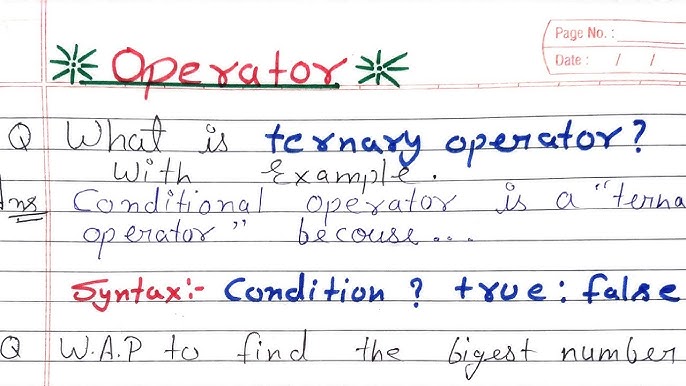 Page No. :
Date : / /
Operator
Q What is ternary operator?
With Example.
Ans Conditional operator is a "terna
operator" becouse...
Syntax:- Condition ? true : false
Q W.A.P to find the bigest number